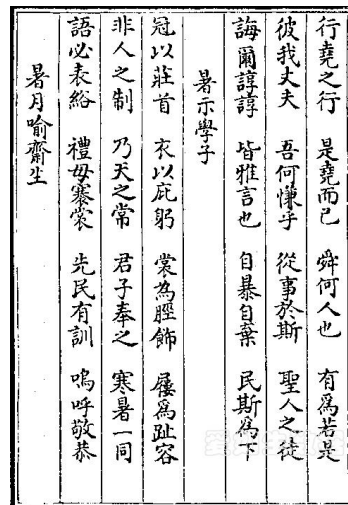 行堯之行　是堯而已　舜何人也　有爲若是
彼我丈夫　吾何慊乎　從事於斯　聖人之徒
誨爾諄諄　皆雅言也　自暴自棄　民斯爲下
暑示學子
冠以莊首　衣以庇躬　裳為脛飾　屨爲趾容
非人之制　乃天之常　君子奉之　寒暑一同
語必表綌　禮毋褰裳　先民有訓　嗚呼敬恭
暑月喻齋生